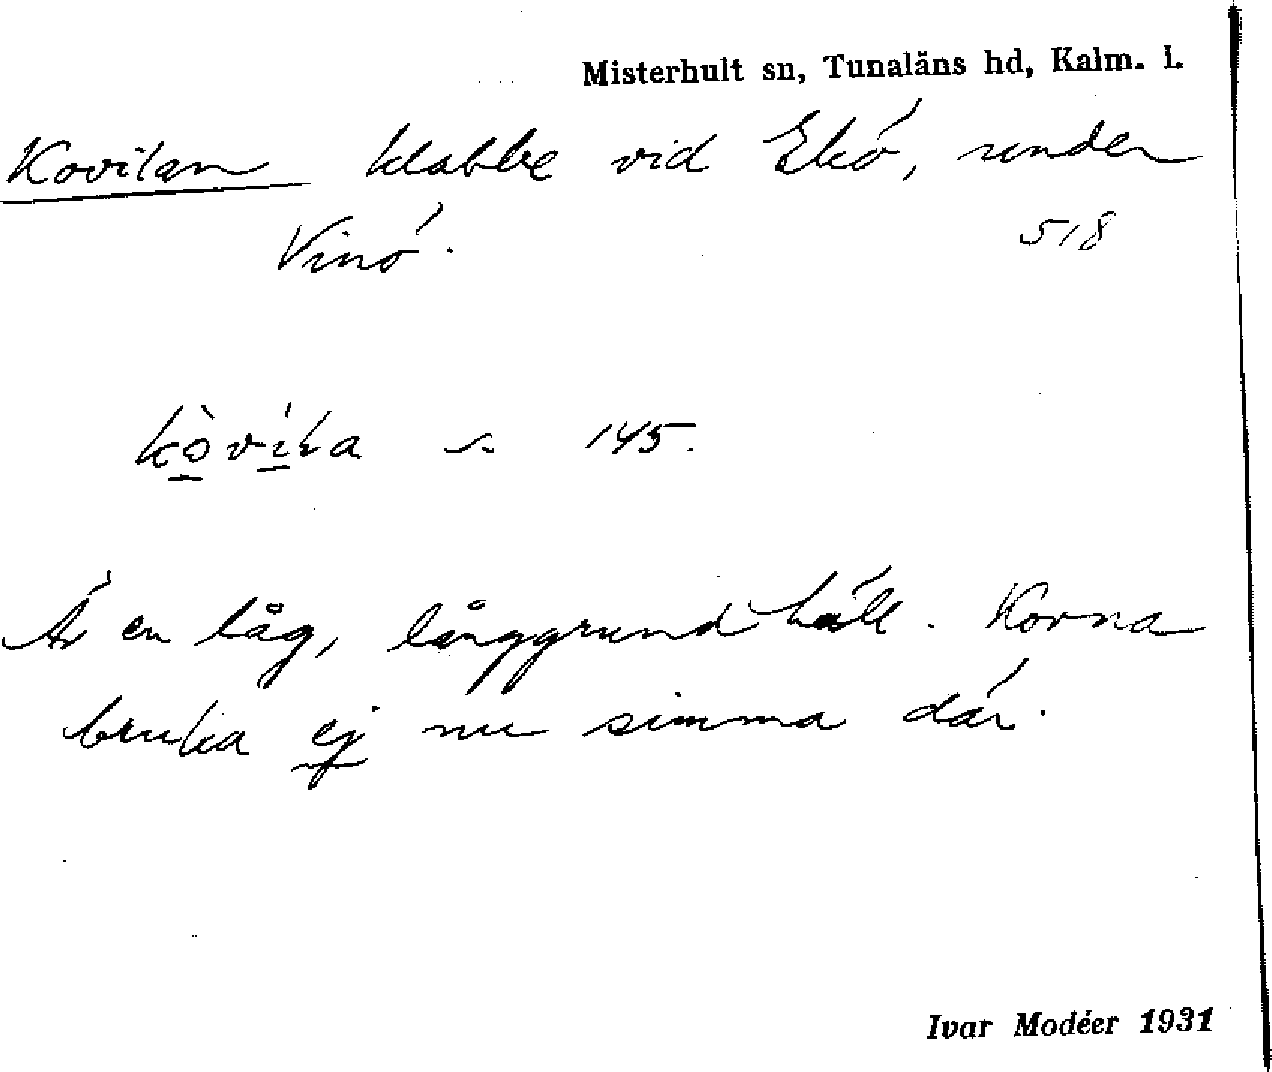 Misterhult sn, Tunaläns hd, Kalm. l.
Kovilan klabbe vid Ekö, under
Vinö.
518
145.
Är en låg, långgrund häll. Korna
bruka ej nu simma där.
Ivar Modéer 1931